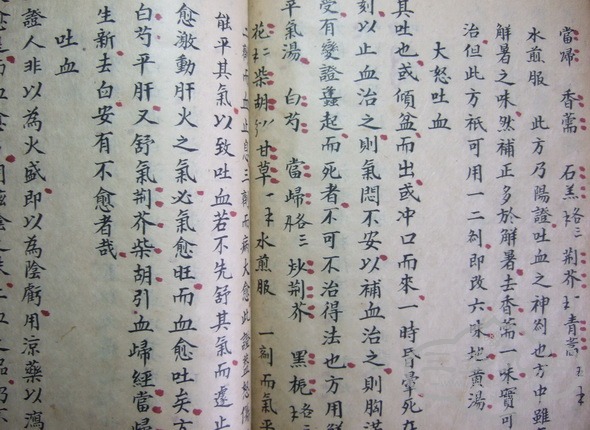 當歸 香薷 石羔 荊芥 青蒿
水煎服 此方乃陽證吐血之神劑也方中雖
解暑之味然補正多於解暑去香薷一味實可
治但此方祇可用一二劑即改六味地黃湯
大怒吐血
其吐也或傾盆而出或冲口而來一時昏暈死在
刻以止血治之則氣悶不安以補血治之則胸滿
受有變證蠭起而死者不可不治得法也方用解
平氣湯 白芍 當歸 炒荊芥 黑梔
花 柴胡 甘草 水煎服 一劑而氣平
二劑而血止息三劑而病大愈此證蓋怒傷
能平其氣以致吐血若不先舒其氣而遽止
愈激動肝火之氣必氣愈旺而血愈吐矣方
白芍平肝又舒氣荊芥柴胡引血歸經當歸
生新去白安有不愈者哉
吐血
證人非以為火盛即以為陰虧用涼藥以瀉